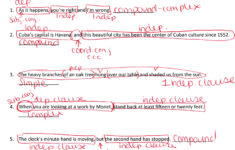 dep
1. As it happens, you're right and I'm wrong. compound-complex
sub. conj. indep indep
indep indep
2. Cuba's capital is Havana, and this beautiful city has been the center of Cuban culture since 1552.
compound
coord. conj.
CCC
3. The heavy branches of an oak tree hung over our table and shaded us from the sun.
Simple 1 indep clause
dep clause indep clause
4. When you are looking at a work by Monet, stand back at least fifteen or twenty feet.
Complex
5. The clock's minute hand is moving, but the second hand has stopped. Compound
indep clause indep clause